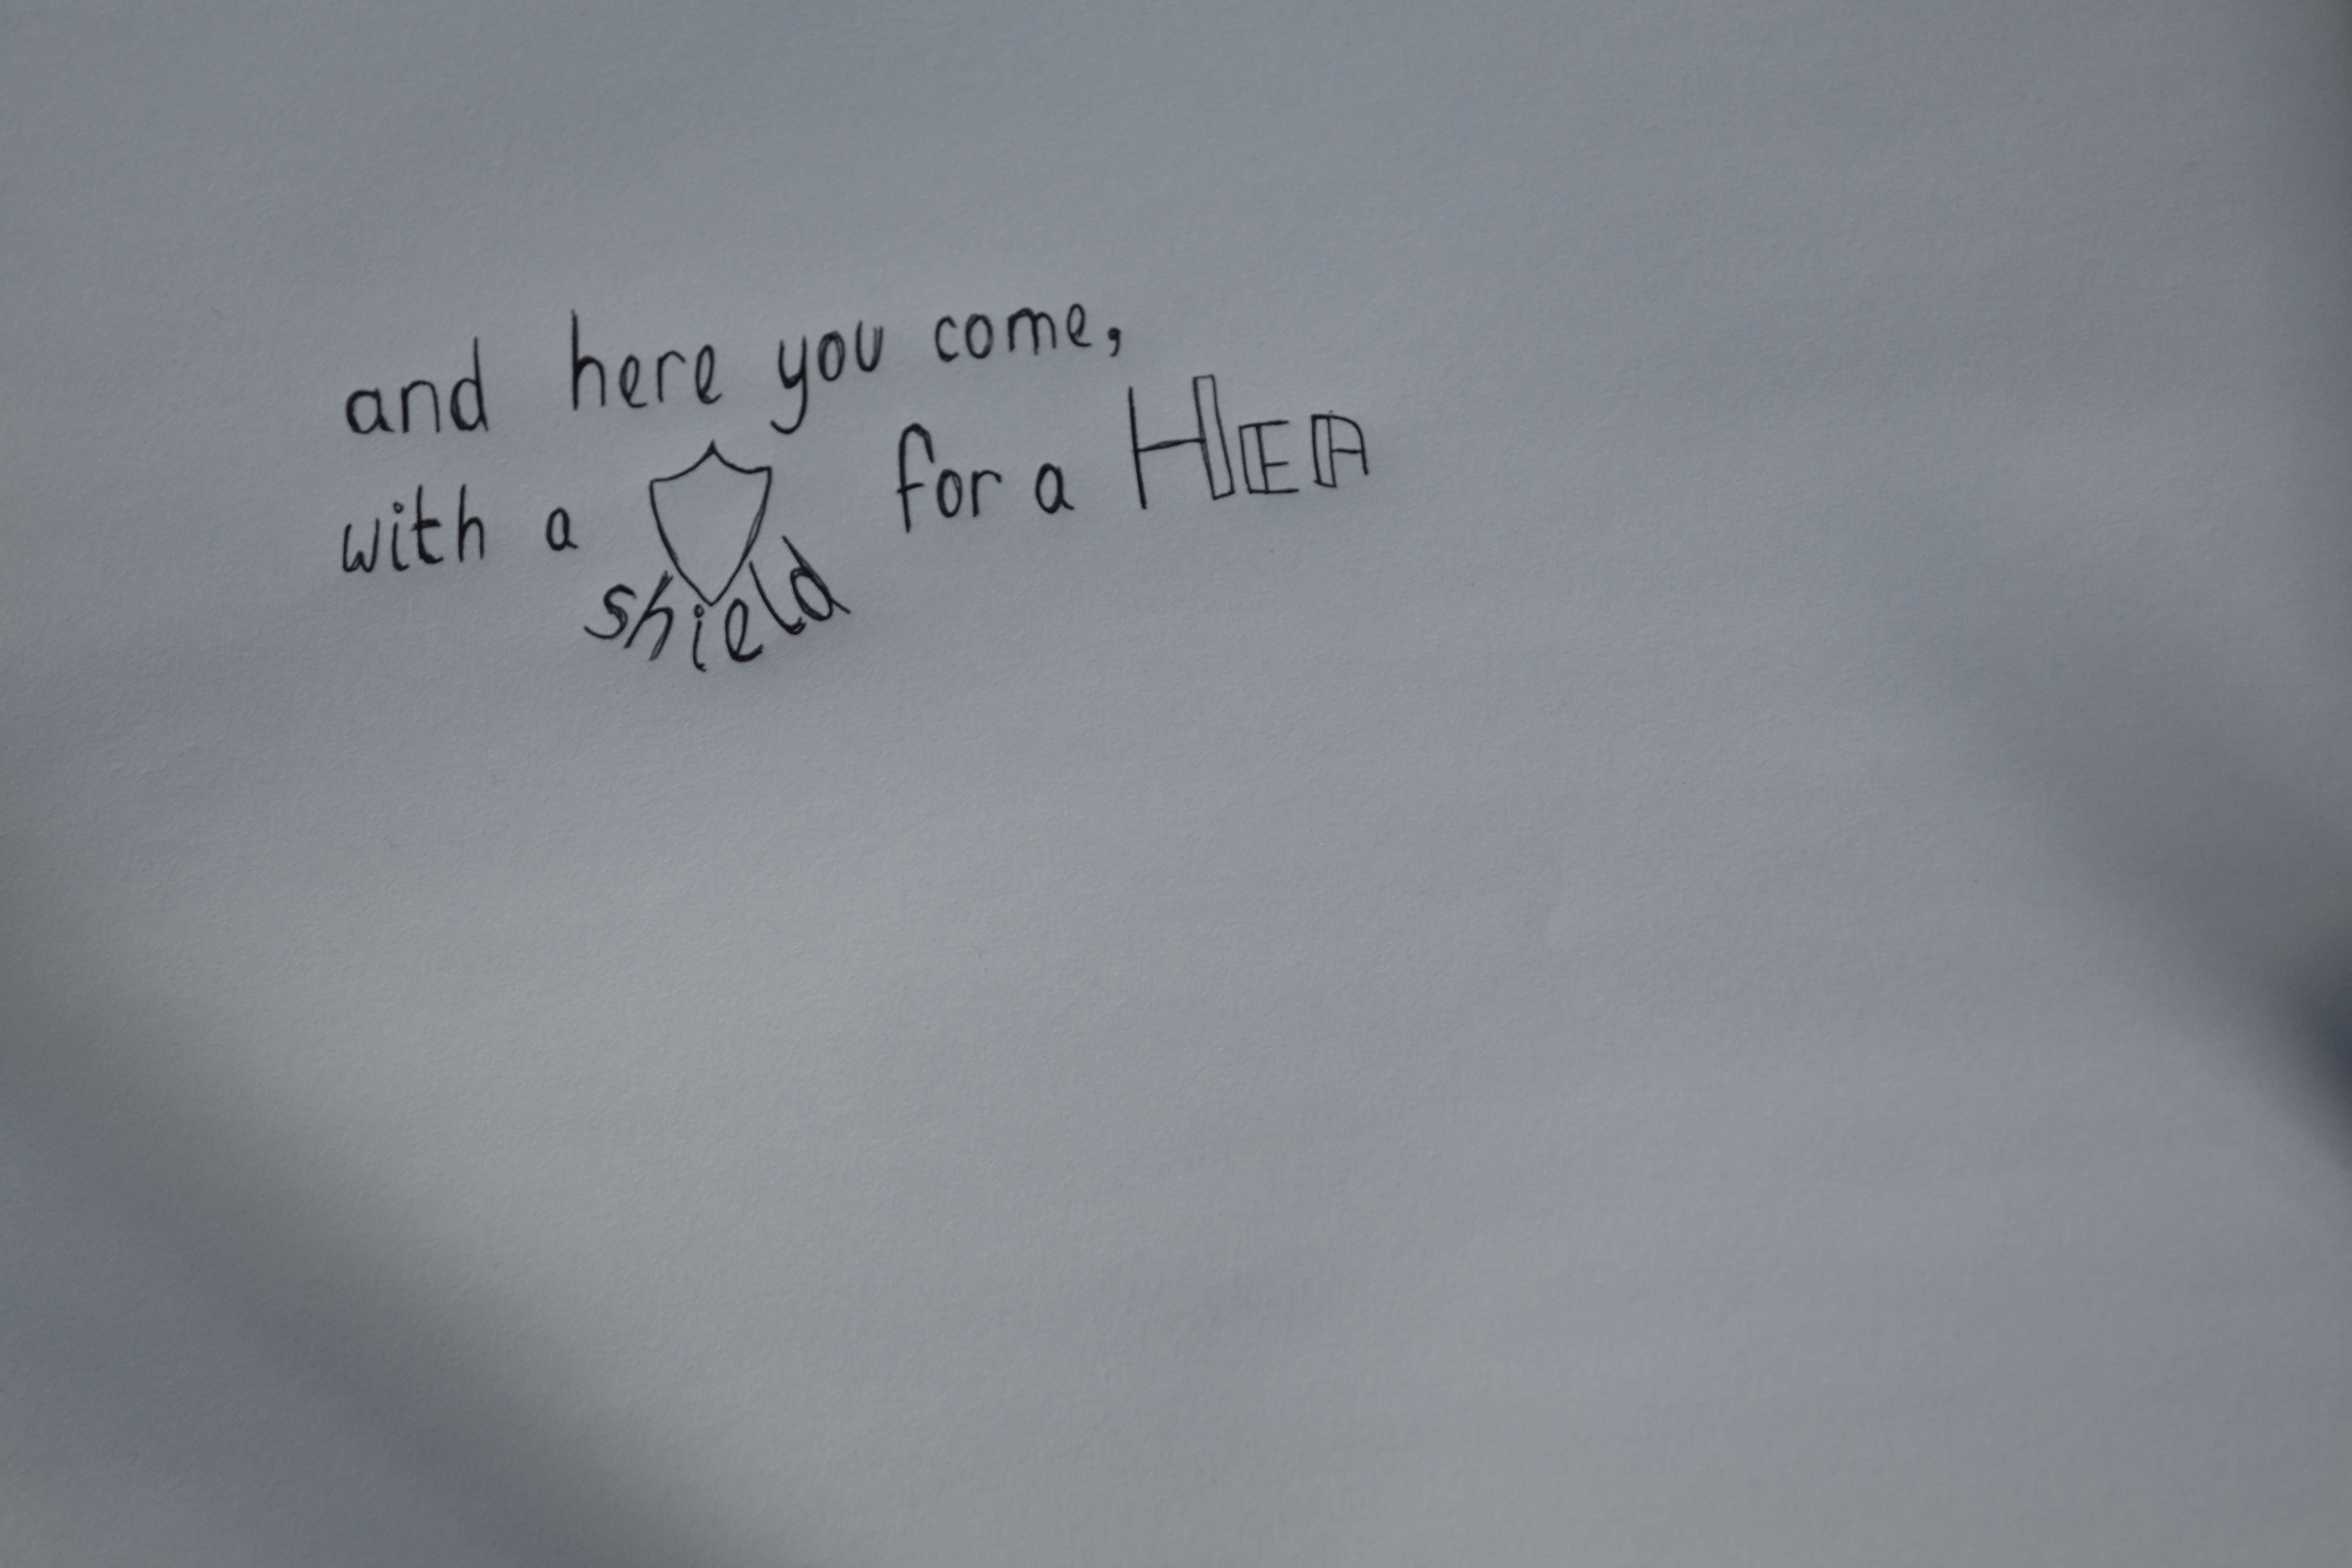 and here you come,
with a shield for a HEA